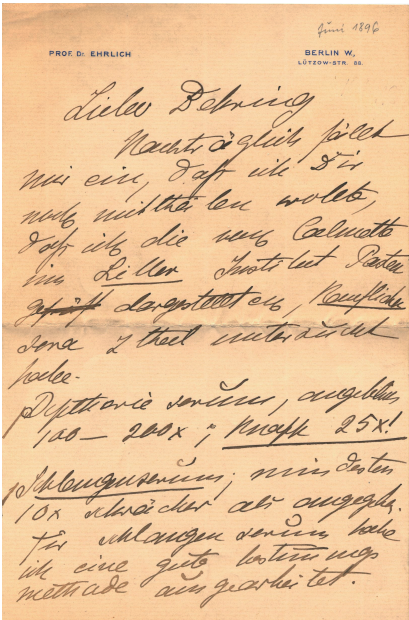 Juni 1896
PROF. Dr. EHRLICH
BERLIN W.,
LÜTZOW-STR. 68.
Lieber Behring
Nachträglich fällt
mir ein, daß ich Dir
noch mittheilen wollte,
daß ich die von Calmette
im Liller Institut
dargestellten, Käuflichen
Sera z theil untersucht
habe.
Dyptherie serum, angeblich
100 – 200x, Knapp 25x!
Schlangenserum, mindestens
10x schwächer als angegeb.
Für schlangen serum habe
ich eine gute bestimungs
methode ausgearbeitet.